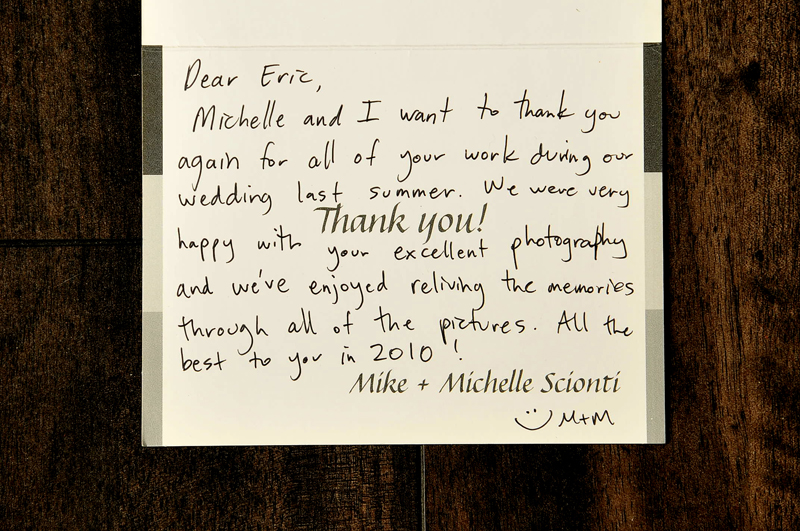 Dear Eric,
Michelle and I want to thank you
again for all of your work during our
wedding last summer. We were very
Thank you!
happy with your excellent photography
and we've enjoyed reliving the memories
through all of the pictures. All the
best to you in 2010!
Mike + Michelle Scionti
M+M